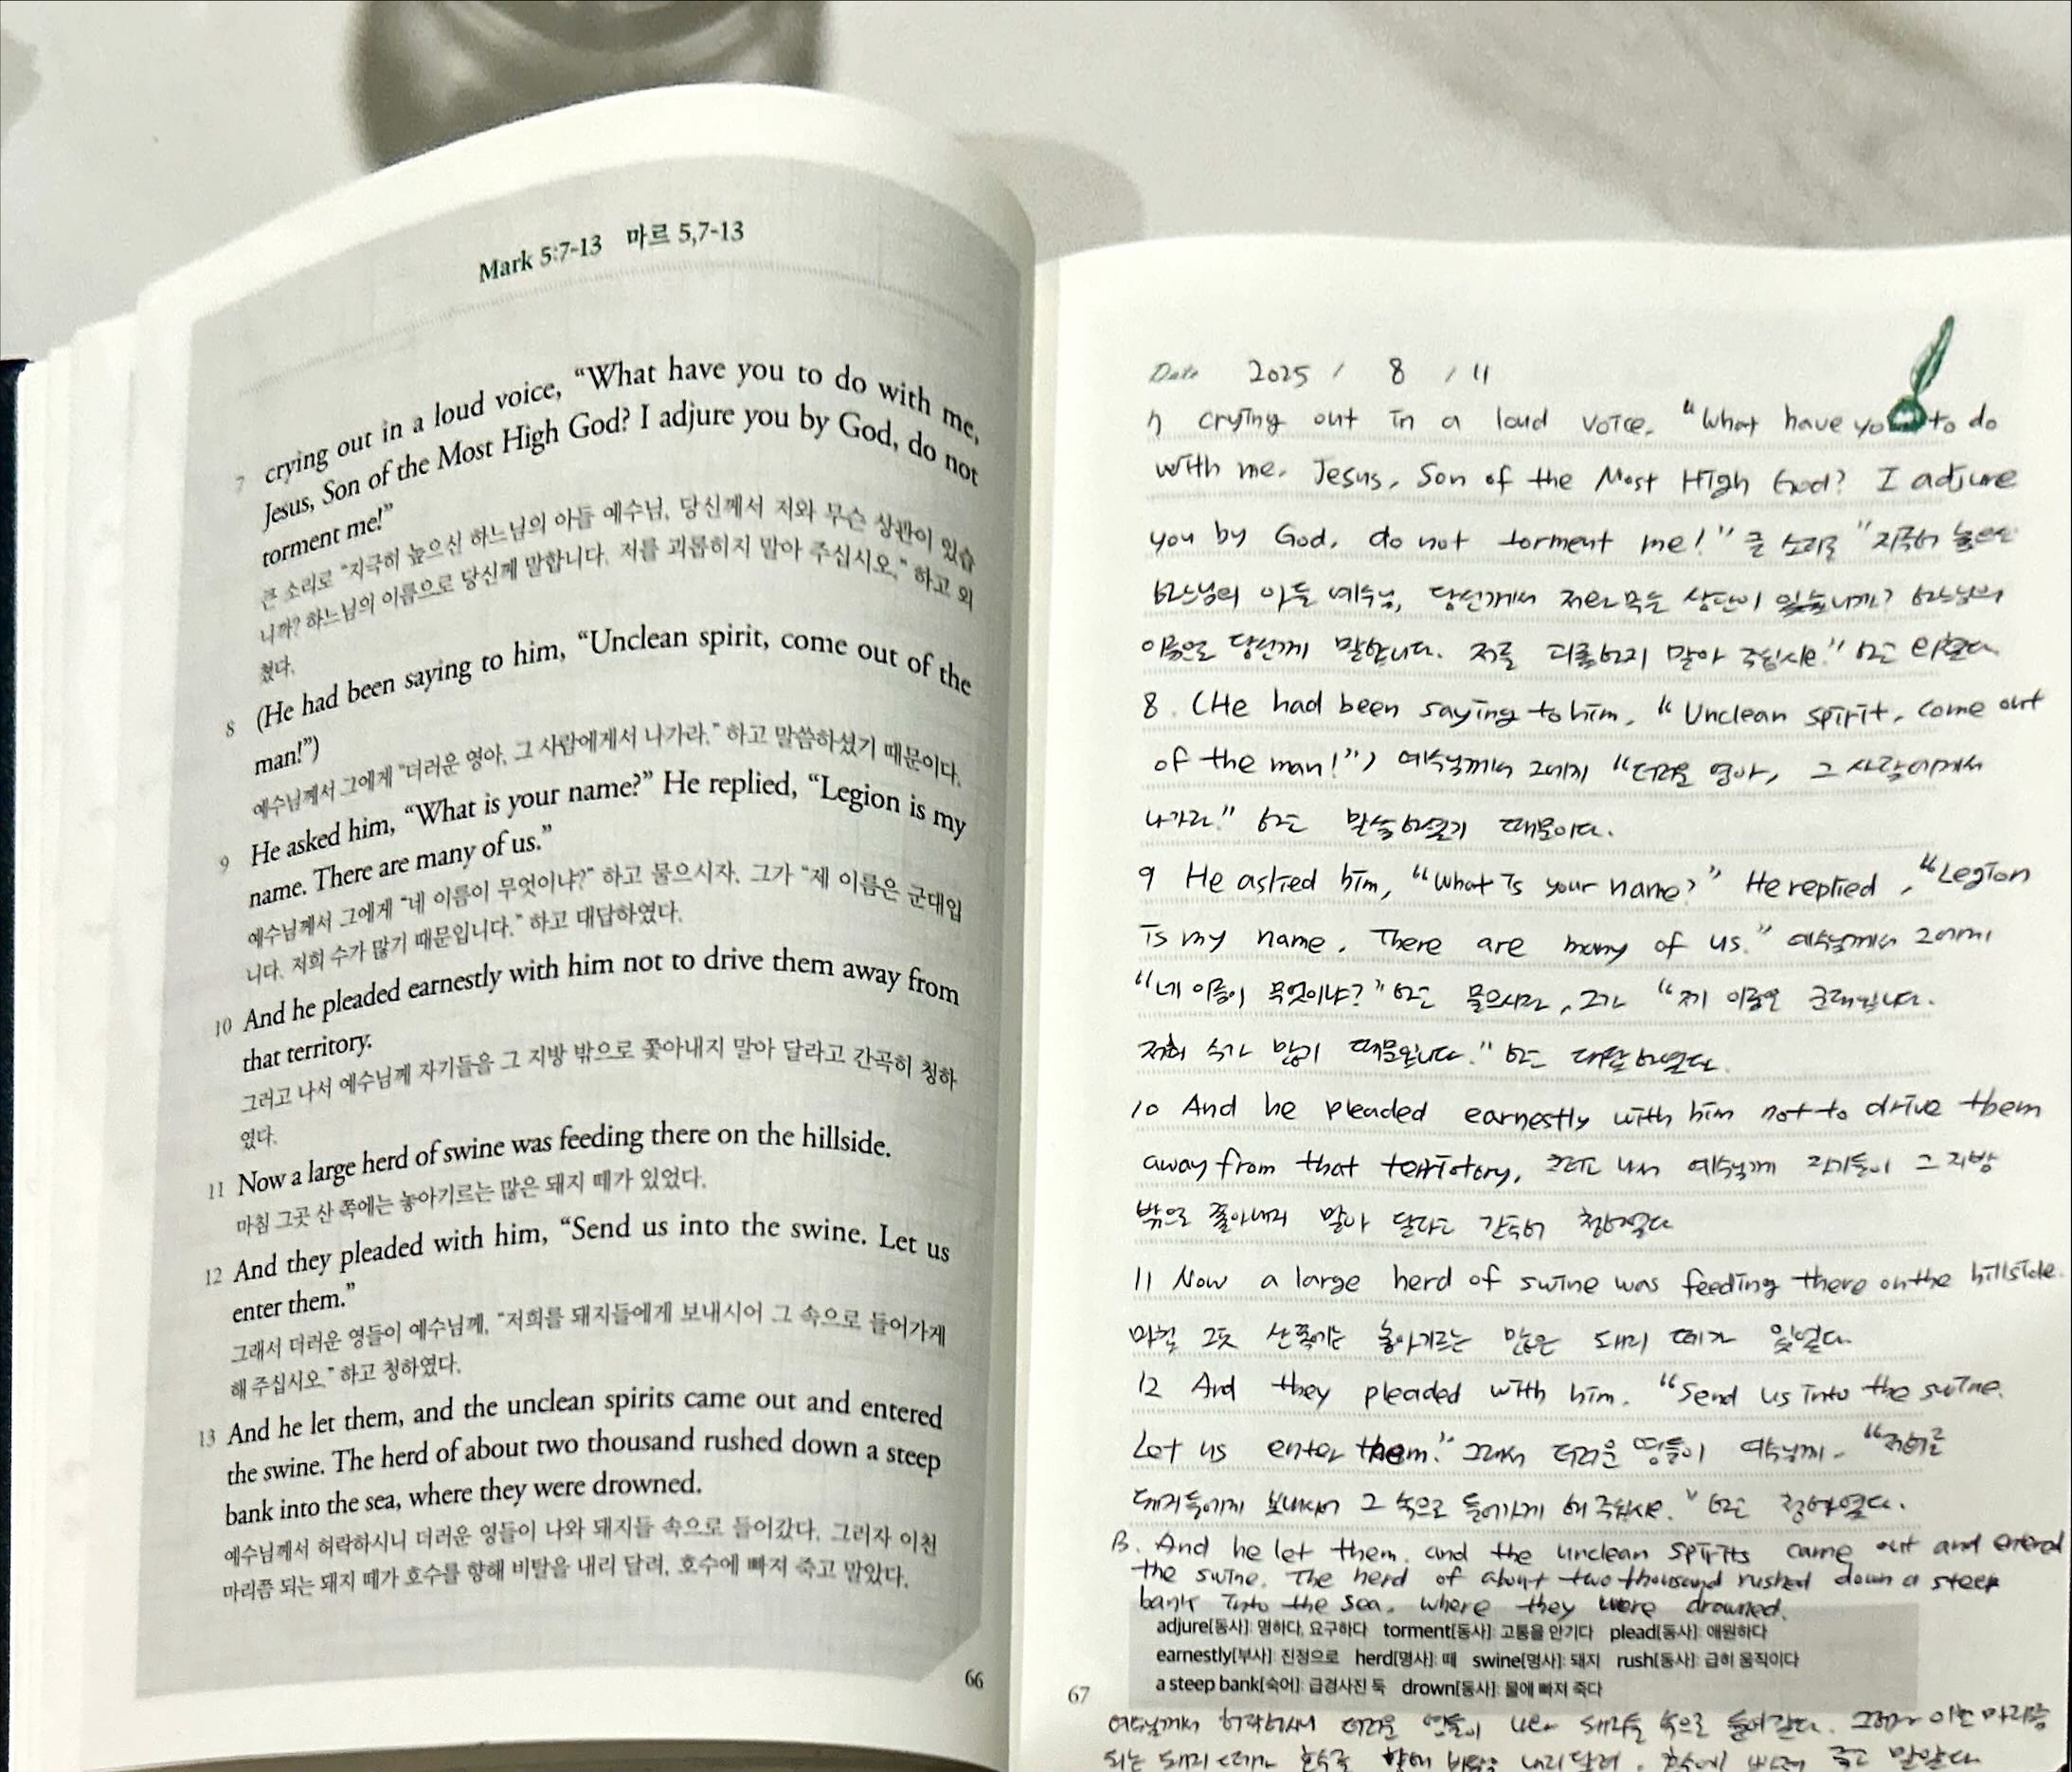 Mark 5:7-13 마르 5,7-13
7 crying out in a loud voice, “What have you to do with me,
Jesus, Son of the Most High God? I adjure you by God, do not
torment me!”
큰 소리로 “지극히 높으신 하느님의 아들 예수님, 당신께서 저와 무슨 상관이 있습
니까? 하느님의 이름으로 당신께 말합니다. 저를 괴롭히지 말아 주십시오.” 하고 외
쳤다.
8 (He had been saying to him, “Unclean spirit, come out of the
man!”)
예수님께서 그에게 “더러운 영아, 그 사람에게서 나가라.” 하고 말씀하셨기 때문이다.
9 He asked him, “What is your name?” He replied, “Legion is my
name. There are many of us.”
예수님께서 그에게 “네 이름이 무엇이냐?” 하고 물으시자, 그가 “제 이름은 군대입
니다. 저희 수가 많기 때문입니다.” 하고 대답하였다.
10 And he pleaded earnestly with him not to drive them away from
that territory.
그러고 나서 예수님께 자기들을 그 지방 밖으로 쫓아내지 말아 달라고 간곡히 청하
였다.
11 Now a large herd of swine was feeding there on the hillside.
마침 그곳 산 쪽에는 놓아기르는 많은 돼지 떼가 있었다.
12 And they pleaded with him, “Send us into the swine. Let us
enter them.”
그래서 더러운 영들이 예수님께, “저희를 돼지들에게 보내시어 그 속으로 들어가게
해 주십시오.” 하고 청하였다.
13 And he let them, and the unclean spirits came out and entered
the swine. The herd of about two thousand rushed down a steep
bank into the sea, where they were drowned.
예수님께서 허락하시니 더러운 영들이 나와 돼지들 속으로 들어갔다. 그러자 이천
마리쯤 되는 돼지 떼가 호수를 향해 비탈을 내리 달려, 호수에 빠져 죽고 말았다.
66
Date 2025 / 8 / 11
7 crying out in a loud voice, “What have you to do
with me, Jesus, Son of the Most High God? I adjure
you by God, do not torment me!” 큰 소리로 “지극히 높으신
하느님의 아들 예수님, 당신께서 저와 무슨 상관이 있습니까? 하느님의
이름으로 당신께 말합니다. 저를 괴롭히지 말아 주십시오.” 하고 외쳤다.
8 (He had been saying to him, “Unclean spirit, come out
of the man!”) 예수님께서 그에게 “더러운 영아, 그 사람에게서
나가라.” 하고 말씀하셨기 때문이다.
9 He asked him, “What is your name?” He replied, “Legion
is my name. There are many of us.” 예수님께서 그에게
“네 이름이 무엇이냐?” 하고 물으시자, 그가 “제 이름은 군대입니다.
저희 수가 많기 때문입니다.” 하고 대답하였다.
10 And he pleaded earnestly with him not to drive them
away from that territory, 그러고 나서 예수님께 자기들이 그 지방
밖으로 쫓아내지 말아 달라고 간곡히 청하였다
11 Now a large herd of swine was feeding there on the hillside.
마침 그곳 산 쪽에는 놓아기르는 많은 돼지 떼가 있었다.
12 And they pleaded with him. “Send us into the swine.
Let us enter them.” 그래서 더러운 영들이 예수님께. “저희를
돼지들에게 보내시어 그 속으로 들어가게 해 주십시오.” 하고 청하였다.
13. And he let them, and the unclean spirits came out and entered
the swine. The herd of about two thousand rushed down a steep
bank into the sea, where they were drowned.
adjure[동사]: 명하다, 요구하다 torment[동사]: 고통을 안기다 plead[동사]: 애원하다
earnestly[부사]: 진정으로 herd[명사]: 떼 swine[명사]: 돼지 rush[동사]: 급히 움직이다
a steep bank[숙어]: 급경사진 둑 drown[동사]: 물에 빠져 죽다
67
예수님께서 허락하시니 더러운 영들이 나와 돼지들 속으로 들어갔다. 그러자 이천 마리쯤
되는 돼지 떼가 호수를 향해 비탈을 내리 달려, 호수에 빠져 죽고 말았다